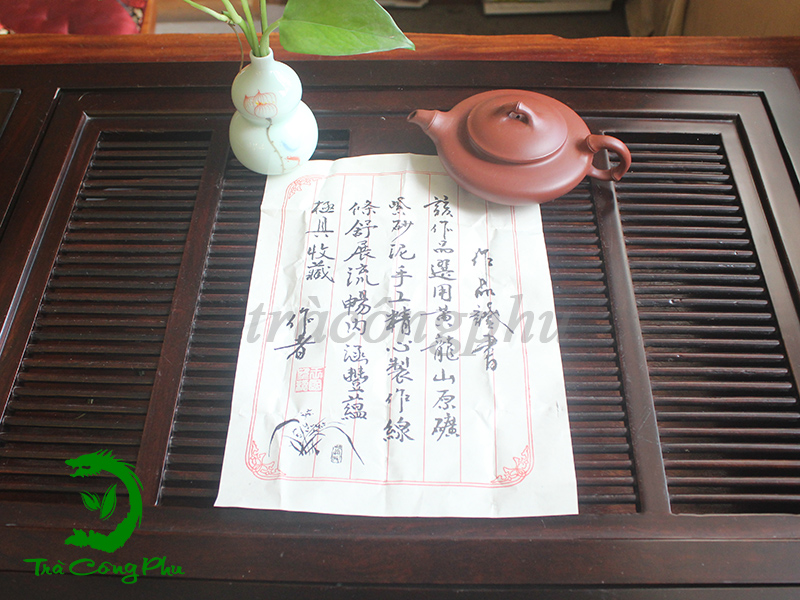 作品證書
該作品選用黃龍山原礦
紫砂泥手工精心製作線
條舒展流暢內涵豐蘊
極具收藏
作者
tràcôngphu
Trà Công Phu